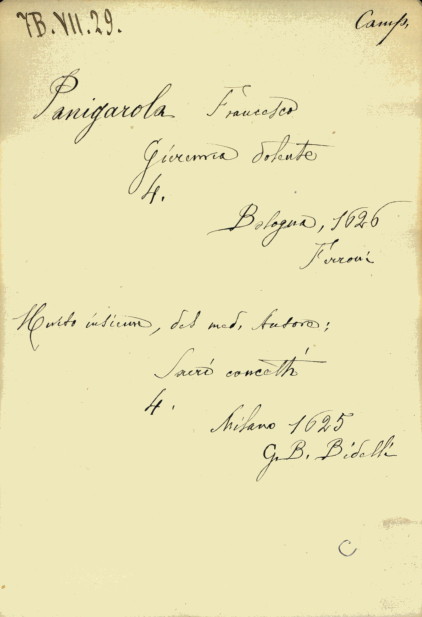 7B.VII.29.
Camp.
Panigarola Francesco
Geremia dolente
4.
Bologna, 1626
Ferroni
Unito insieme, del med. Autore:
Sacri concetti
4.
Milano 1625
G.B. Bidelli
C